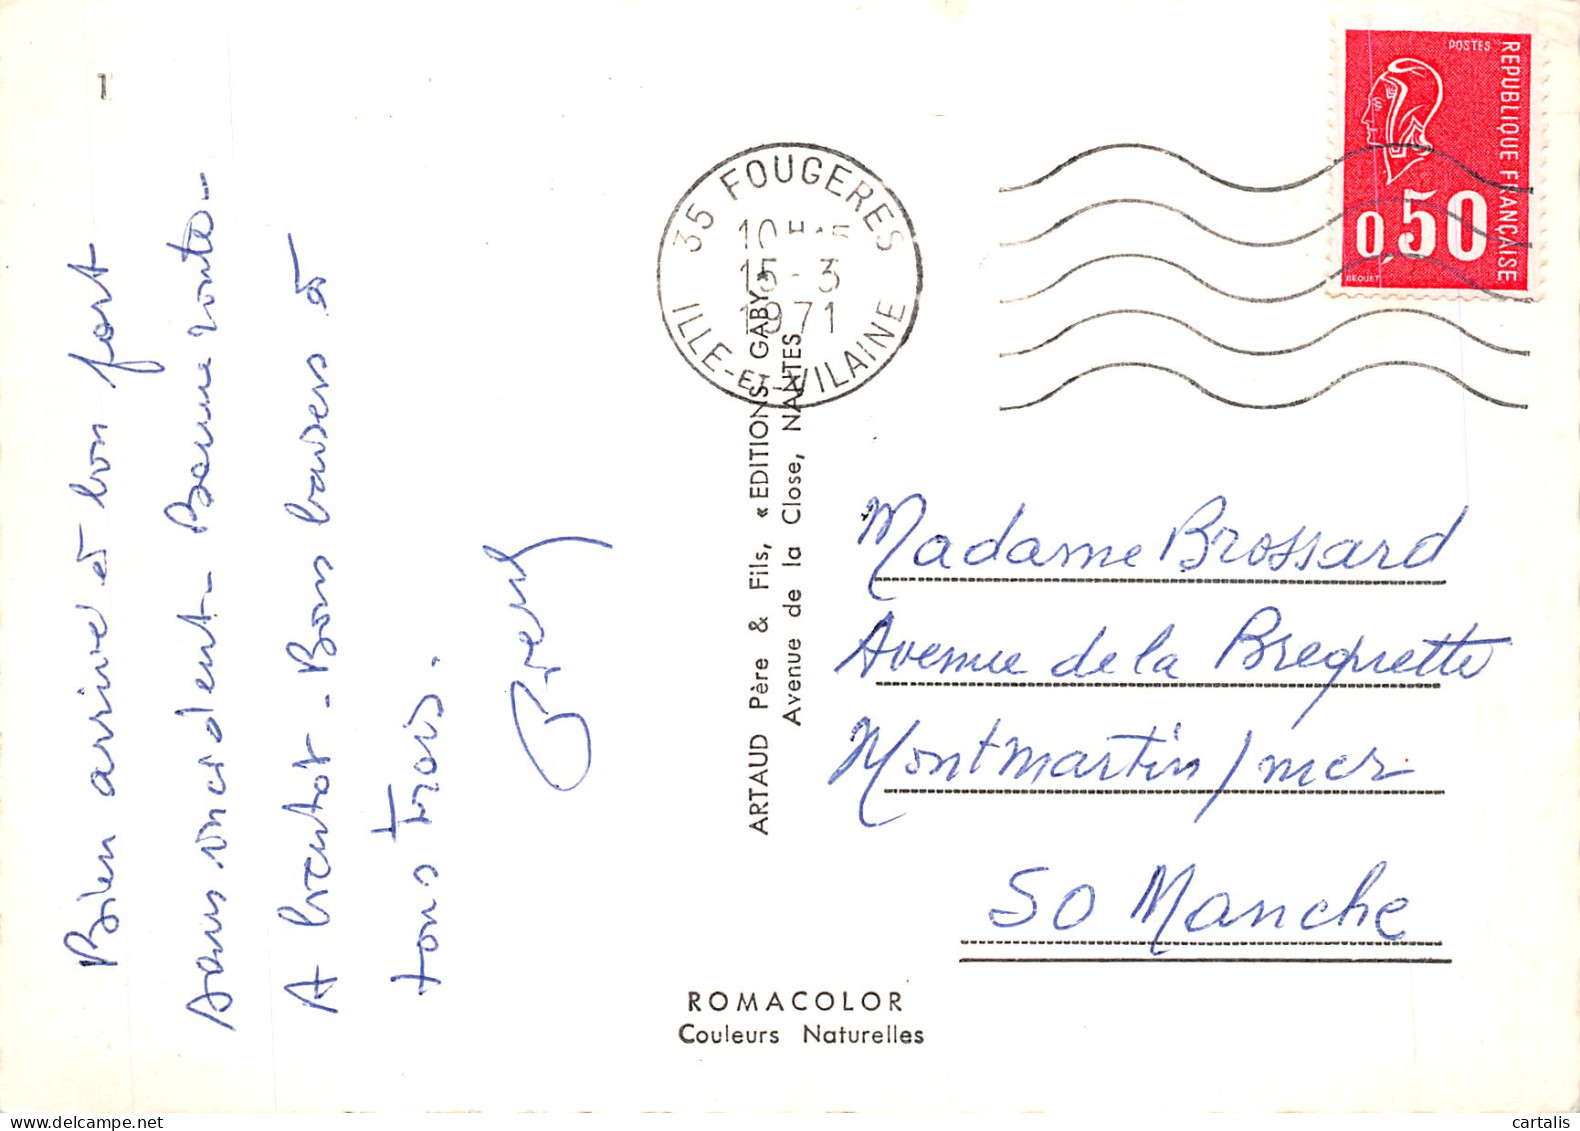 1
Bien arrivé et bon port
sans incident. Bonne route.
A bientôt. Bons baisers à
tous trois.
35 FOUGERES
10H15
15-3
1971
ILLE-ET-VILAINE
POSTES
REPUBLIQUE FRANÇAISE
0,50
BEQUET
ARTAUD Père & Fils, «EDITIONS GABY»
Avenue de la Close, NANTES
Madame Brossard
Avenue de la Brequette
Montmartin/mer
50 Manche
ROMACOLOR
Couleurs Naturelles
cartalis